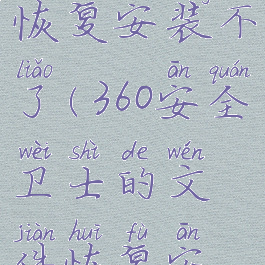 恢复安装不
liǎo ān quán
了(360安全
wèi shì de wén
卫士的文
jiàn huī fù ān
件恢复安